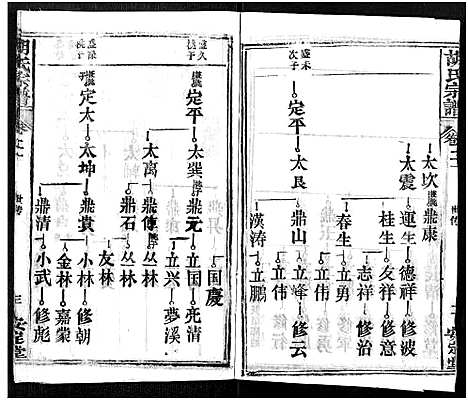 胡氏宗譜
卷之二
世傳
安定堂
太坎
鼎康
太震
運生
德祥
修波
桂生
友祥
修意
春生
志祥
修治
立勇
立偉
盛末
次子
定平
太艮
鼎山
立峰
修云
立偉
漢濤
立鵬
盛久
桃子
定平
太巽
鼎元
立國
亮清
國慶
立興
夢溪
太离
鼎傳
丛林
鼎石
友林
桃子
定太
太坤
鼎貴
小林
修朝
金林
嘉棠
鼎清
小武
修彪
世傳
三
安定堂